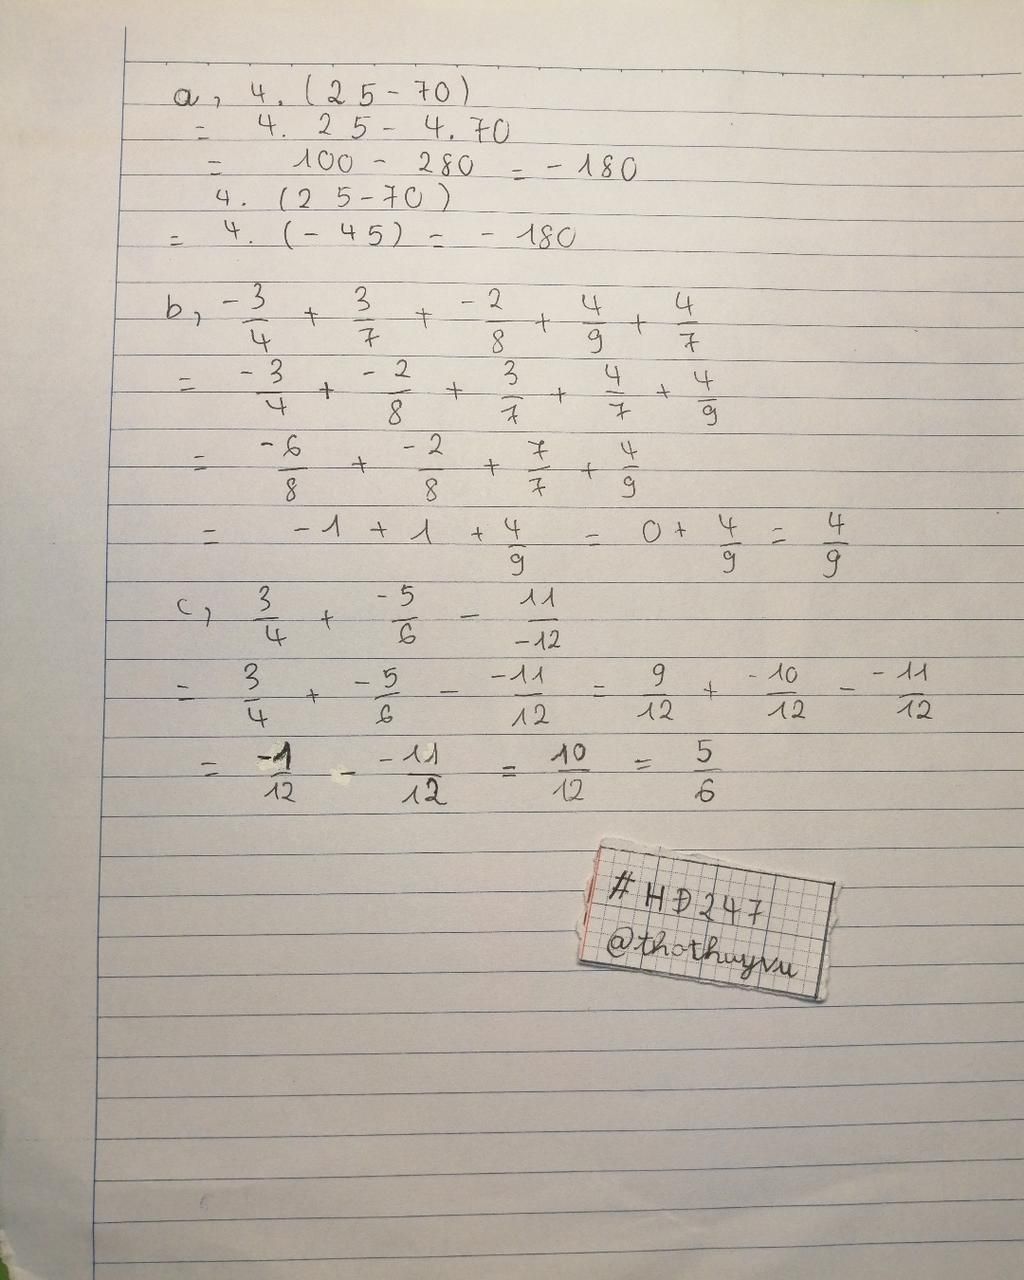 a, 4. (25-70)
= 4. 25 - 4.70
= 100 - 280 = -180
4. (25-70)
= 4. (-45) = -180
b, -3/4 + 3/7 + -2/8 + 4/9 + 4/7
= -3/4 + -2/8 + 3/7 + 4/7 + 4/9
= -6/8 + -2/8 + 7/7 + 4/9
= -1 + 1 + 4/9 = 0 + 4/9 = 4/9
c, 3/4 + -5/6 - 11/-12
= 3/4 + -5/6 - -11/12 = 9/12 + -10/12 - -11/12
= -1/12 - -11/12 = 10/12 = 5/6
#HD247
@thothuyvu